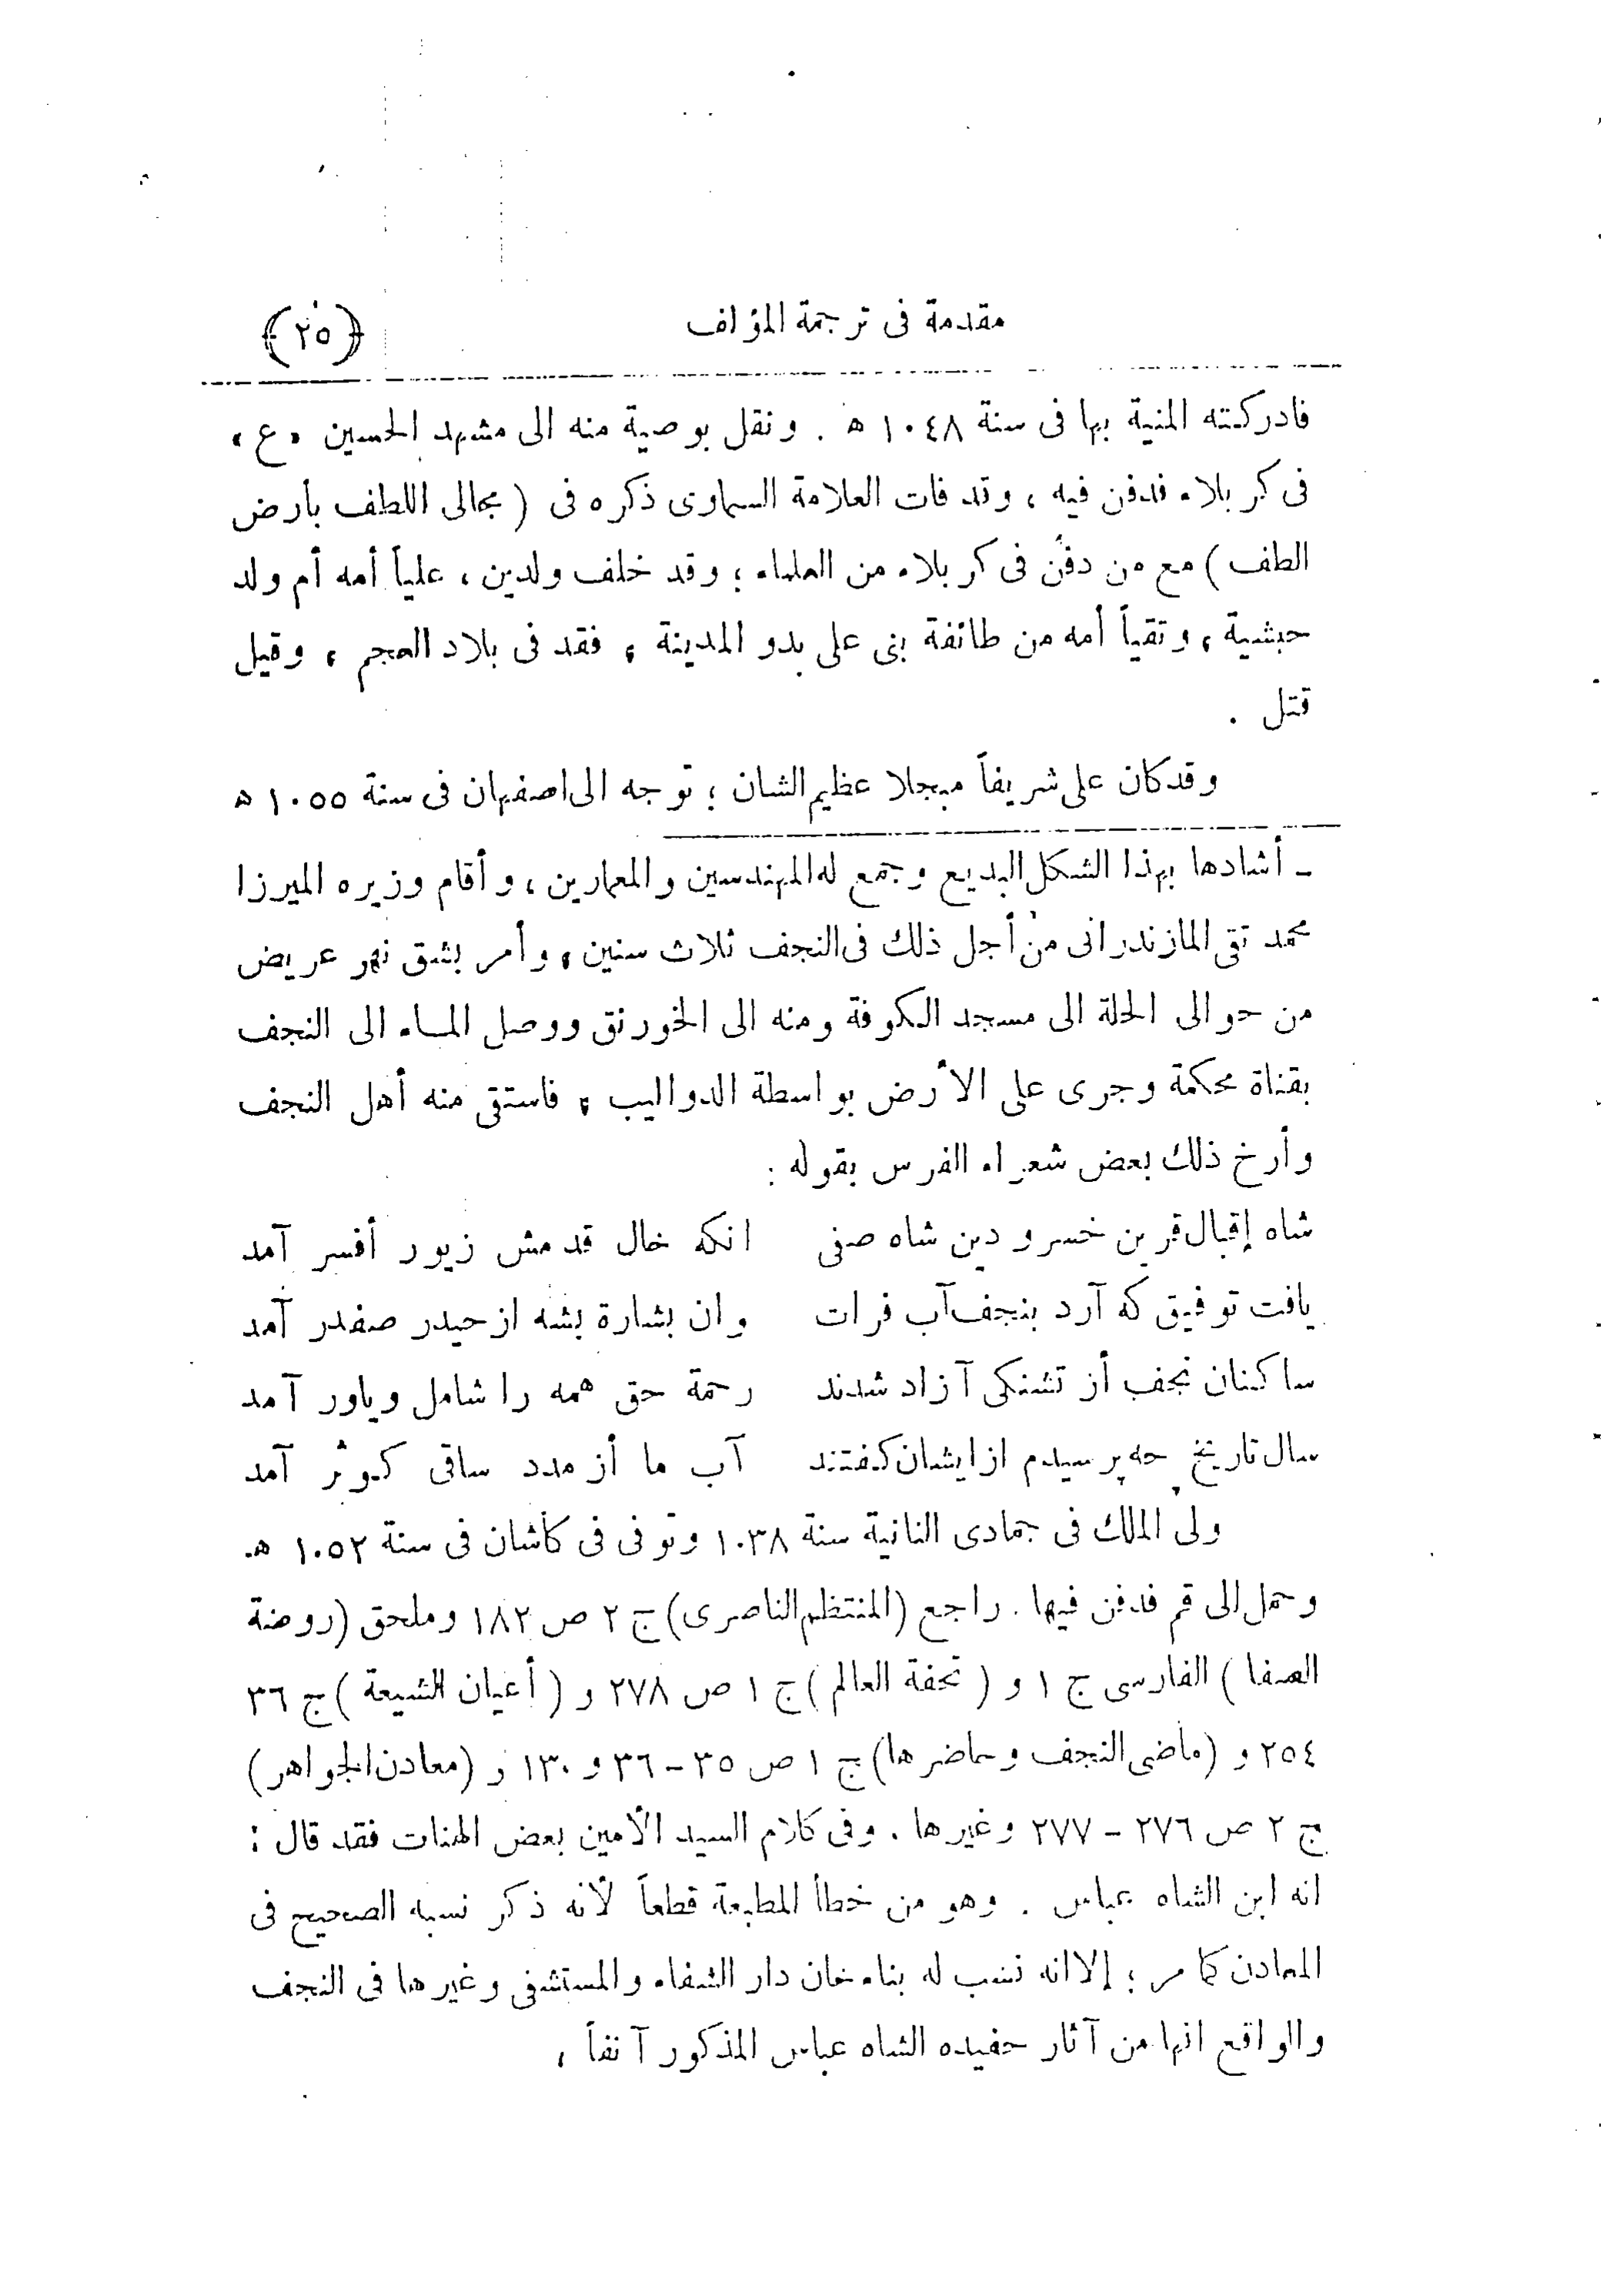 مقدمة فى ترجمة المؤلف
(٢٥)
فادركته المنية بها فى سنة ١٠٤٨ ه . ونقل بوصية منه الى مشهد الحسين «ع»
فى كربلاء فدفن فيه ، وقد فات العلامة السماوى ذكره فى ( مجالى اللطف بأرض
الطف ) مع من دفن فى كربلاء من العلماء ؛ وقد خلف ولدين ، علياً أمه أم ولد
حبشية ، وتقياً أمه من طائفة بنى على بدو المدينة ، فقد فى بلاد العجم ، وقيل
قتل .
وقد كان على شريفاً مبجلا عظيم الشان ؛ توجه الى اصفهان فى سنة ١٠٥٥ ه
ـ أشادها بهذا الشكل البديع وجمع له المهندسين والمعمارين ، وأقام وزيره الميرزا
محمد تقى المازندرانى من أجل ذلك فى النجف ثلاث سنين ، وأمر بشق نهر عريض
من حوالى الحلة الى مسجد الكوفة ومنه الى الخورنق ووصل الماء الى النجف
بقناة محكمة وجرى على الأرض بواسطة الدواليب ، فاستقى منه أهل النجف
وأرخ ذلك بعض شعراء الفرس بقوله :
شاه إقبال قرين خسرو دين شاه صفى انكه خال قدمش زيور أفسر آمد
يافت توفيق كه آرد بنجف آب فرات وان بشارة بشه از حيدر صفدر آمد
ساكنان نجف أز تشنكى آزاد شدند رحمة حق همه را شامل وياور آمد
سال تاريخ چه پرسيدم از ايشان كفتند آب ما أز مدد ساقى كوثر آمد
ولى الملك فى جمادى الثانية سنة ١٠٣٨ وتوفى فى كاشان فى سنة ١٠٥٢ ه.
وحمل الى قم فدفن فيها . راجع (المنتظم الناصرى) ج ٢ ص ١٨٢ وملحق (روضة
الصفا ) الفارسى ج ١ و ( تحفة العالم ) ج ١ ص ٢٧٨ و ( أعيان الشيعة ) ج ٣٦
٢٥٤ و (ماضى النجف وحاضرها) ج ١ ص ٣٥ - ٣٦ و ١٣٠ و (معادن الجواهر)
ج ٢ ص ٢٧٦ - ٢٧٧ وغيرها . وفى كلام السيد الأمين بعض الهنات فقد قال :
انه ابن الشاه عباس . وهو من خطأ المطبعة قطعاً لأنه ذكر نسبه الصحيح فى
المعادن كما مر ؛ إلا انه نسب له بناء خان دار الشفاء والمستشفى وغيرها فى النجف
والواقع انها من آثار حفيده الشاه عباس المذكور آنفاً ،